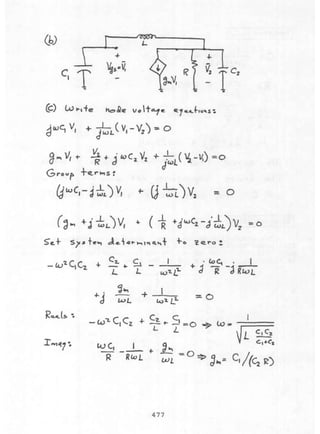 (b)
L
+ +
C₁ V̄gs = V̄₁ gₘV₁ R V̄₂ C₂
- -
(c) Write node voltage equations:
jωC₁ V₁ + 1/jωL (V₁ - V₂) = 0
gₘV₁ + V₂/R + jωC₂ V₂ + 1/jωL (V₂ - V₁) = 0
Group terms:
(jωC₁ - j 1/ωL) V₁ + (j 1/ωL) V₂ = 0
(gₘ + j 1/ωL) V₁ + (1/R + jωC₂ - j 1/ωL) V₂ = 0
Set system determinant to zero:
-ω²C₁C₂ + C₂/L + C₁/L - 1/ω²L² + j ωC₁/R - j 1/RωL
+ j gₘ/ωL + 1/ω²L² = 0
Reals: -ω²C₁C₂ + C₂/L + C₁/L = 0 ⇒ ω = 1/√(L C₁C₂/(C₁+C₂))
Imag: ωC₁/R - 1/RωL + gₘ/ωL = 0 ⇒ gₘ = C₁/(C₂ R)
477